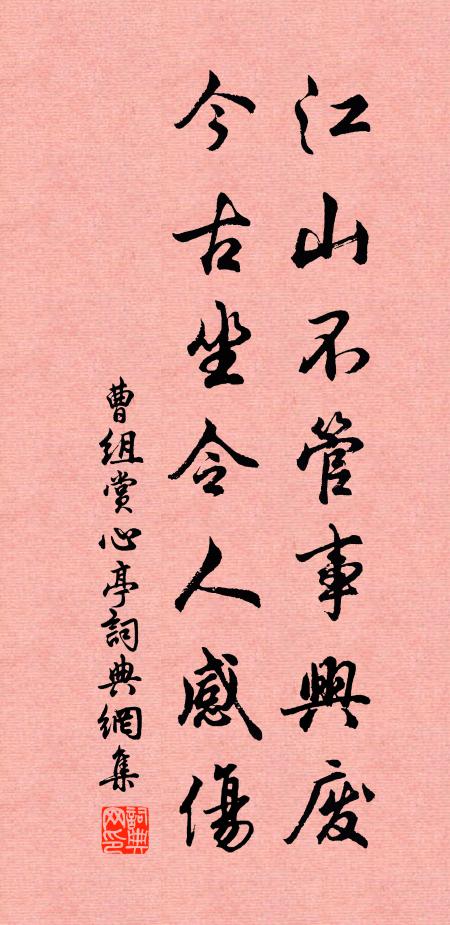 江山不管事興廢
今古坐令人感傷
曹組賞心亭詞典網集
詞典網印